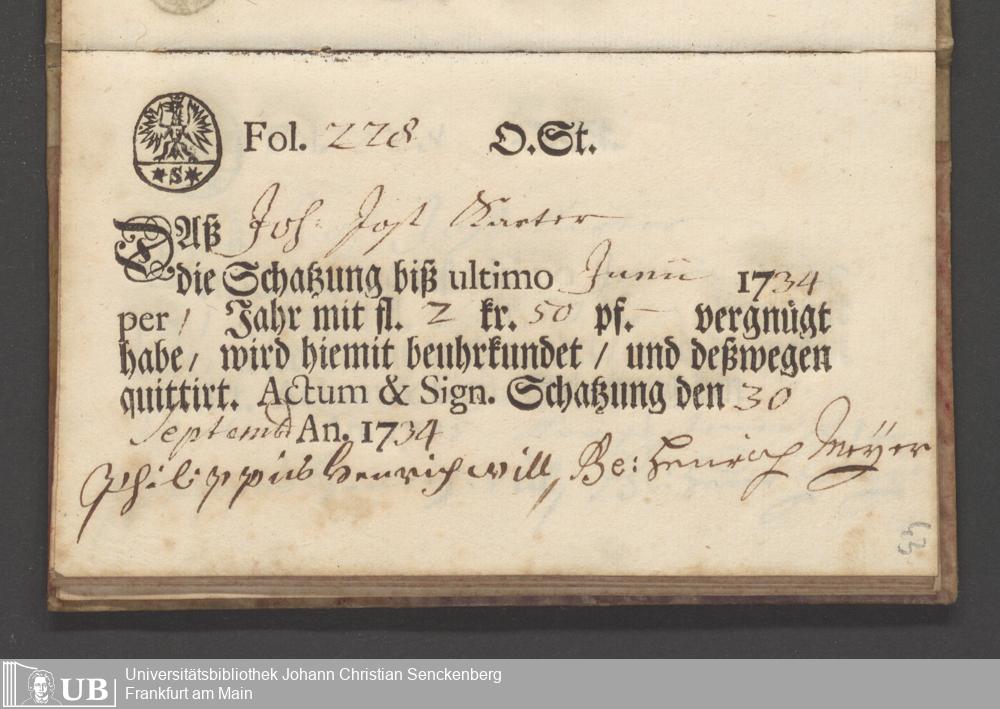 * S *
Fol. 228 O.St.
Daß Joh: Jost Karter
die Schatzung biß ultimo Junii 1734
per 1 Jahr mit fl. 2 kr. 50 pf. – vergnügt
habe / wird hiemit beuhrkundet / und deßwegen
quittirt. Actum & Sign. Schatzung den 30
Septemb An. 1734
Philippus Henrich Will, Be: Henrich Meÿer
Universitätsbibliothek Johann Christian Senckenberg
UB Frankfurt am Main